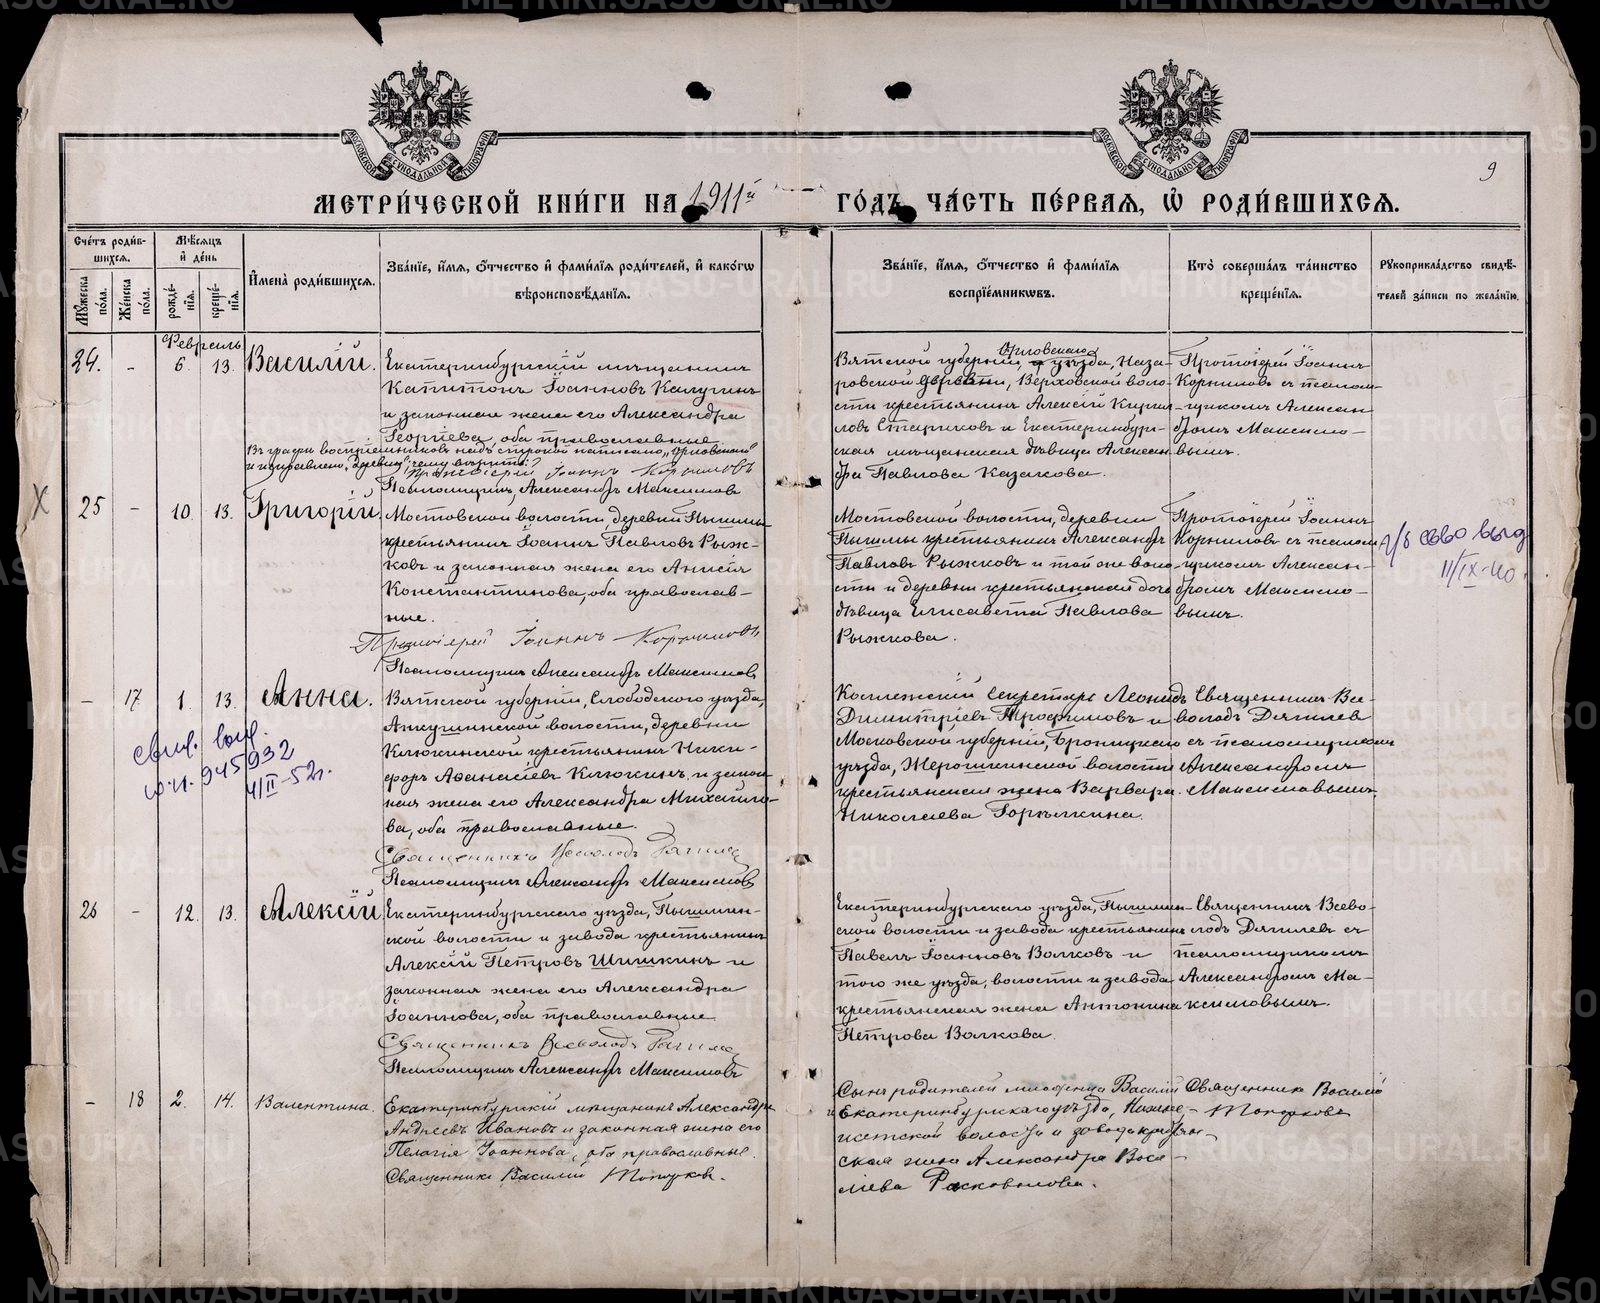 МОСКОВСКОЙ СѴНОДАЛЬНОЙ ТИПОГРАФІИ
МОСКОВСКОЙ СѴНОДАЛЬНОЙ ТИПОГРАФІИ
9
МЕТРИ́ЧЕСКОЙ КНИ́ГИ НА 1911й
ГО́ДЪ ЧА́СТЬ ПЕ́РВАЯ, Ѡ РОДИ́ВШИХСЯ.
Сче́тъ роди́в-
шихся.
Мѣ́сяцъ
и де́нь
Му́жеска по́ла.
Же́нска по́ла.
рожде́нїя.
креще́нїя.
Имена̀ роди́вшихся.
Зва́нїе, и́мя, о́тчество и фами́лїя роди́телей, и како́гѡ
вѣроисповѣ́данїя.
Зва́нїе, и́мя, о́тчество и фами́лїя
воспрїе́мникѡвъ.
Кто̀ соверша́лъ та́инство
креще́нїя.
Рукоприкла́дство свидѣ́-
телей за́писи по жела́нїю.
Февраль
24. - 6. 13. Василій.
Екатеринбургскій мѣщанинъ
Капитонъ Іоанновъ Калугинъ
и законная жена его Александра
Георгіева, оба православные
Въ графѣ воспріемниковъ надъ строкой написано „Орловскаго"
и исправлено „деревни", чему вѣрить:
Протоіерей Іоаннъ Корниловъ
Псаломщикъ Александръ Максимовъ
Орловскаго
Вятской губерніи, уѣзда, Наза-
ровской деревни, Верховской воло-
сти крестьянинъ Алексій Кирил-
ловъ Стариковъ и Екатеринбург-
ская мѣщанская дѣвица Алексан-
дра Павлова Казакова.
Протоіерей Іоаннъ
Корниловъ съ псалом-
щикомъ Алексан-
дромъ Максимо-
вымъ.
X 25 - 10. 13. Григорій.
Мостовской волости, деревни Пышмы
крестьянинъ Іоаннъ Павловъ Рыж-
ковъ и законная жена его Анисія
Константинова, оба православ-
ные.
Протоіерей Іоаннъ Корниловъ
Псаломщикъ Александръ Максимовъ
Мостовской волости, деревни
Пышмы крестьянинъ Александръ
Павловъ Рыжковъ и той же воло-
сти и деревни крестьянская дочь
дѣвица Елисавета Павлова
Рыжкова.
Протоіерей Іоаннъ
Корниловъ съ псалом-
щикомъ Алексан-
дромъ Максимо-
вымъ.
св-во выд
11/IX-40.
- 17. 1. 13. Анна.
свид. выд.
945932
4/II-52г.
Вятской губерніи, Слободского уѣзда,
волости, деревни
Клюкинской крестьянинъ Ники-
форъ Аѳанасіевъ Клюкинъ и закон-
ная жена его Александра Михайло-
ва, оба православные.
Священникъ Всеволодъ Дягилевъ
Псаломщикъ Александръ Максимовъ
Коллежскій Секретарь Леонидъ
Димитріевъ Трофимовъ и
Московской губерніи, Бронницкаго
уѣзда, волости
крестьянская жена Варвара
Николаева Горѣлкина.
Священникъ Все-
володъ Дягилевъ
съ псаломщикомъ
Александромъ
Максимовымъ.
26 - 12. 13. Алексій.
Екатеринбургскаго уѣзда, Пышмин-
ской волости и завода крестьянинъ
Алексій Петровъ Шишкинъ и
законная жена его Александра
Іоаннова, оба православные
Священникъ Всеволодъ Дягилевъ
Псаломщикъ Александръ Максимовъ
Екатеринбургскаго уѣзда, Пышмин-
ской волости и завода крестьянинъ
Павелъ Іоанновъ Волковъ и
того же уѣзда, волости и завода
крестьянская жена Антонина
Петрова Волкова.
Священникъ Всево-
лодъ Дягилевъ съ
псаломщикомъ
Александромъ Ма-
ксимовымъ.
- 18 2. 14. Валентина.
Екатеринбургскій мѣщанинъ Александръ
Андреевъ Ивановъ и законная жена его
Пелагія Іоаннова, оба православные.
Священникъ Василій Топорковъ.
Сынъ родителей младенца Василій
и Екатеринбургскаго уѣзда, Нижне-
исетской волости и завода крестьян-
ская жена Александра Васи-
лиева
Священникъ Василій
Топорковъ
METRIKI.GASO-URAL.RU